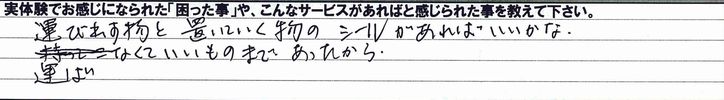 実体験でお感じになられた「困った事」や、こんなサービスがあればと感じられた事を教えて下さい。
運び出す物と置いていく物のシールがあればいいかな。
なくていいものまであったから。
運ばい